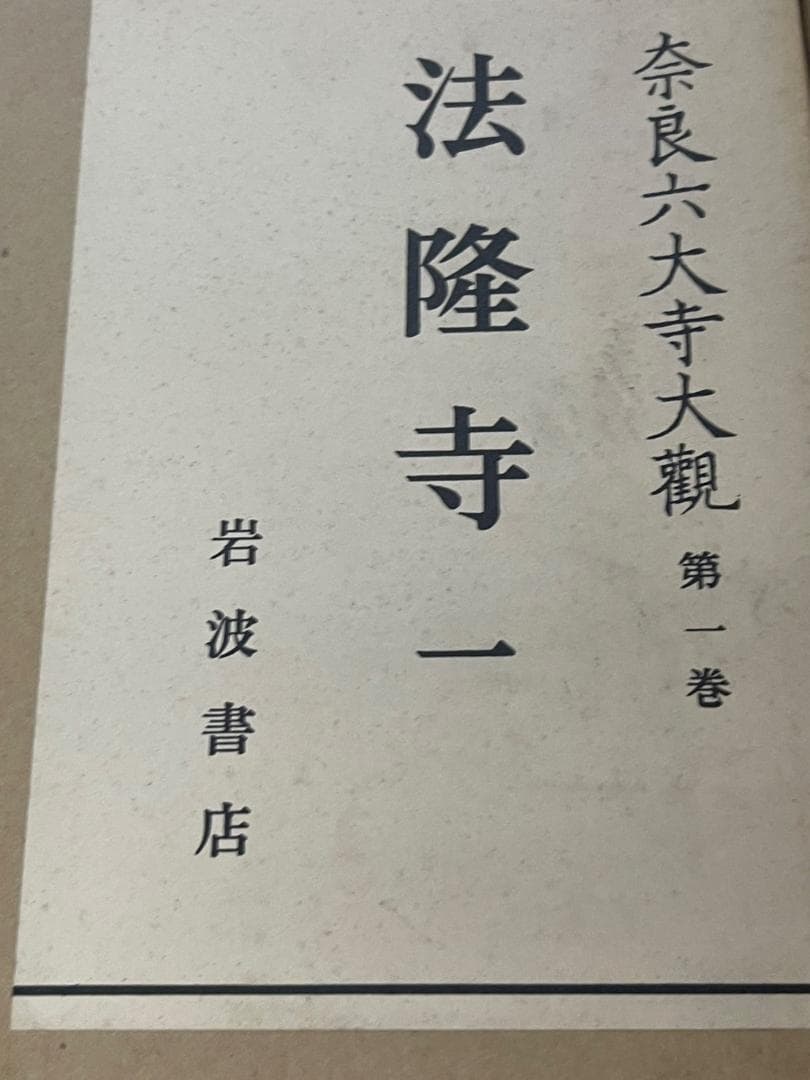 奈良六大寺大觀 第一巻
法隆寺 一
岩波書店